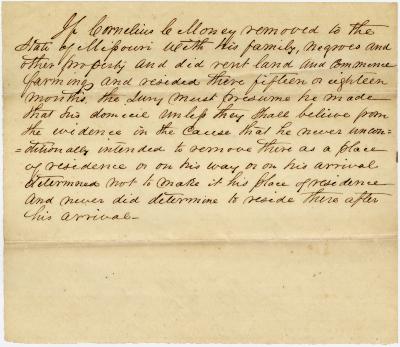 If Cornelius C Money removed to the
State of Missouri with his family, negroes and
other property and did rent land and commence
farming and resided there fifteen or eighteen
months, the Jury must presume he made
that his domicil unless they shall believe from
the evidence in the cause that he never uncon=
=ditionally intended to remove there as a place
of residence or on his way or on his arrival
determined not to make it his place of residence
and never did determine to reside there after
his arrival-